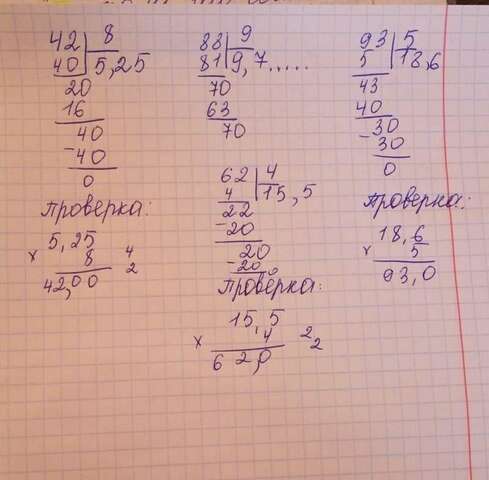 42 | 8
40 | 5,25
20
16
40
-40
0
Проверка:
5,25
× 8 4
42,00 2
88 | 9
81 | 9,7.....
70
63
70
62 | 4
4 | 15,5
22
-20
20
-20
0
Проверка:
15,5
× 4 2
62,0 2
93 | 5
5 | 18,6
43
40
-30
30
0
Проверка:
18,6
× 5
93,0